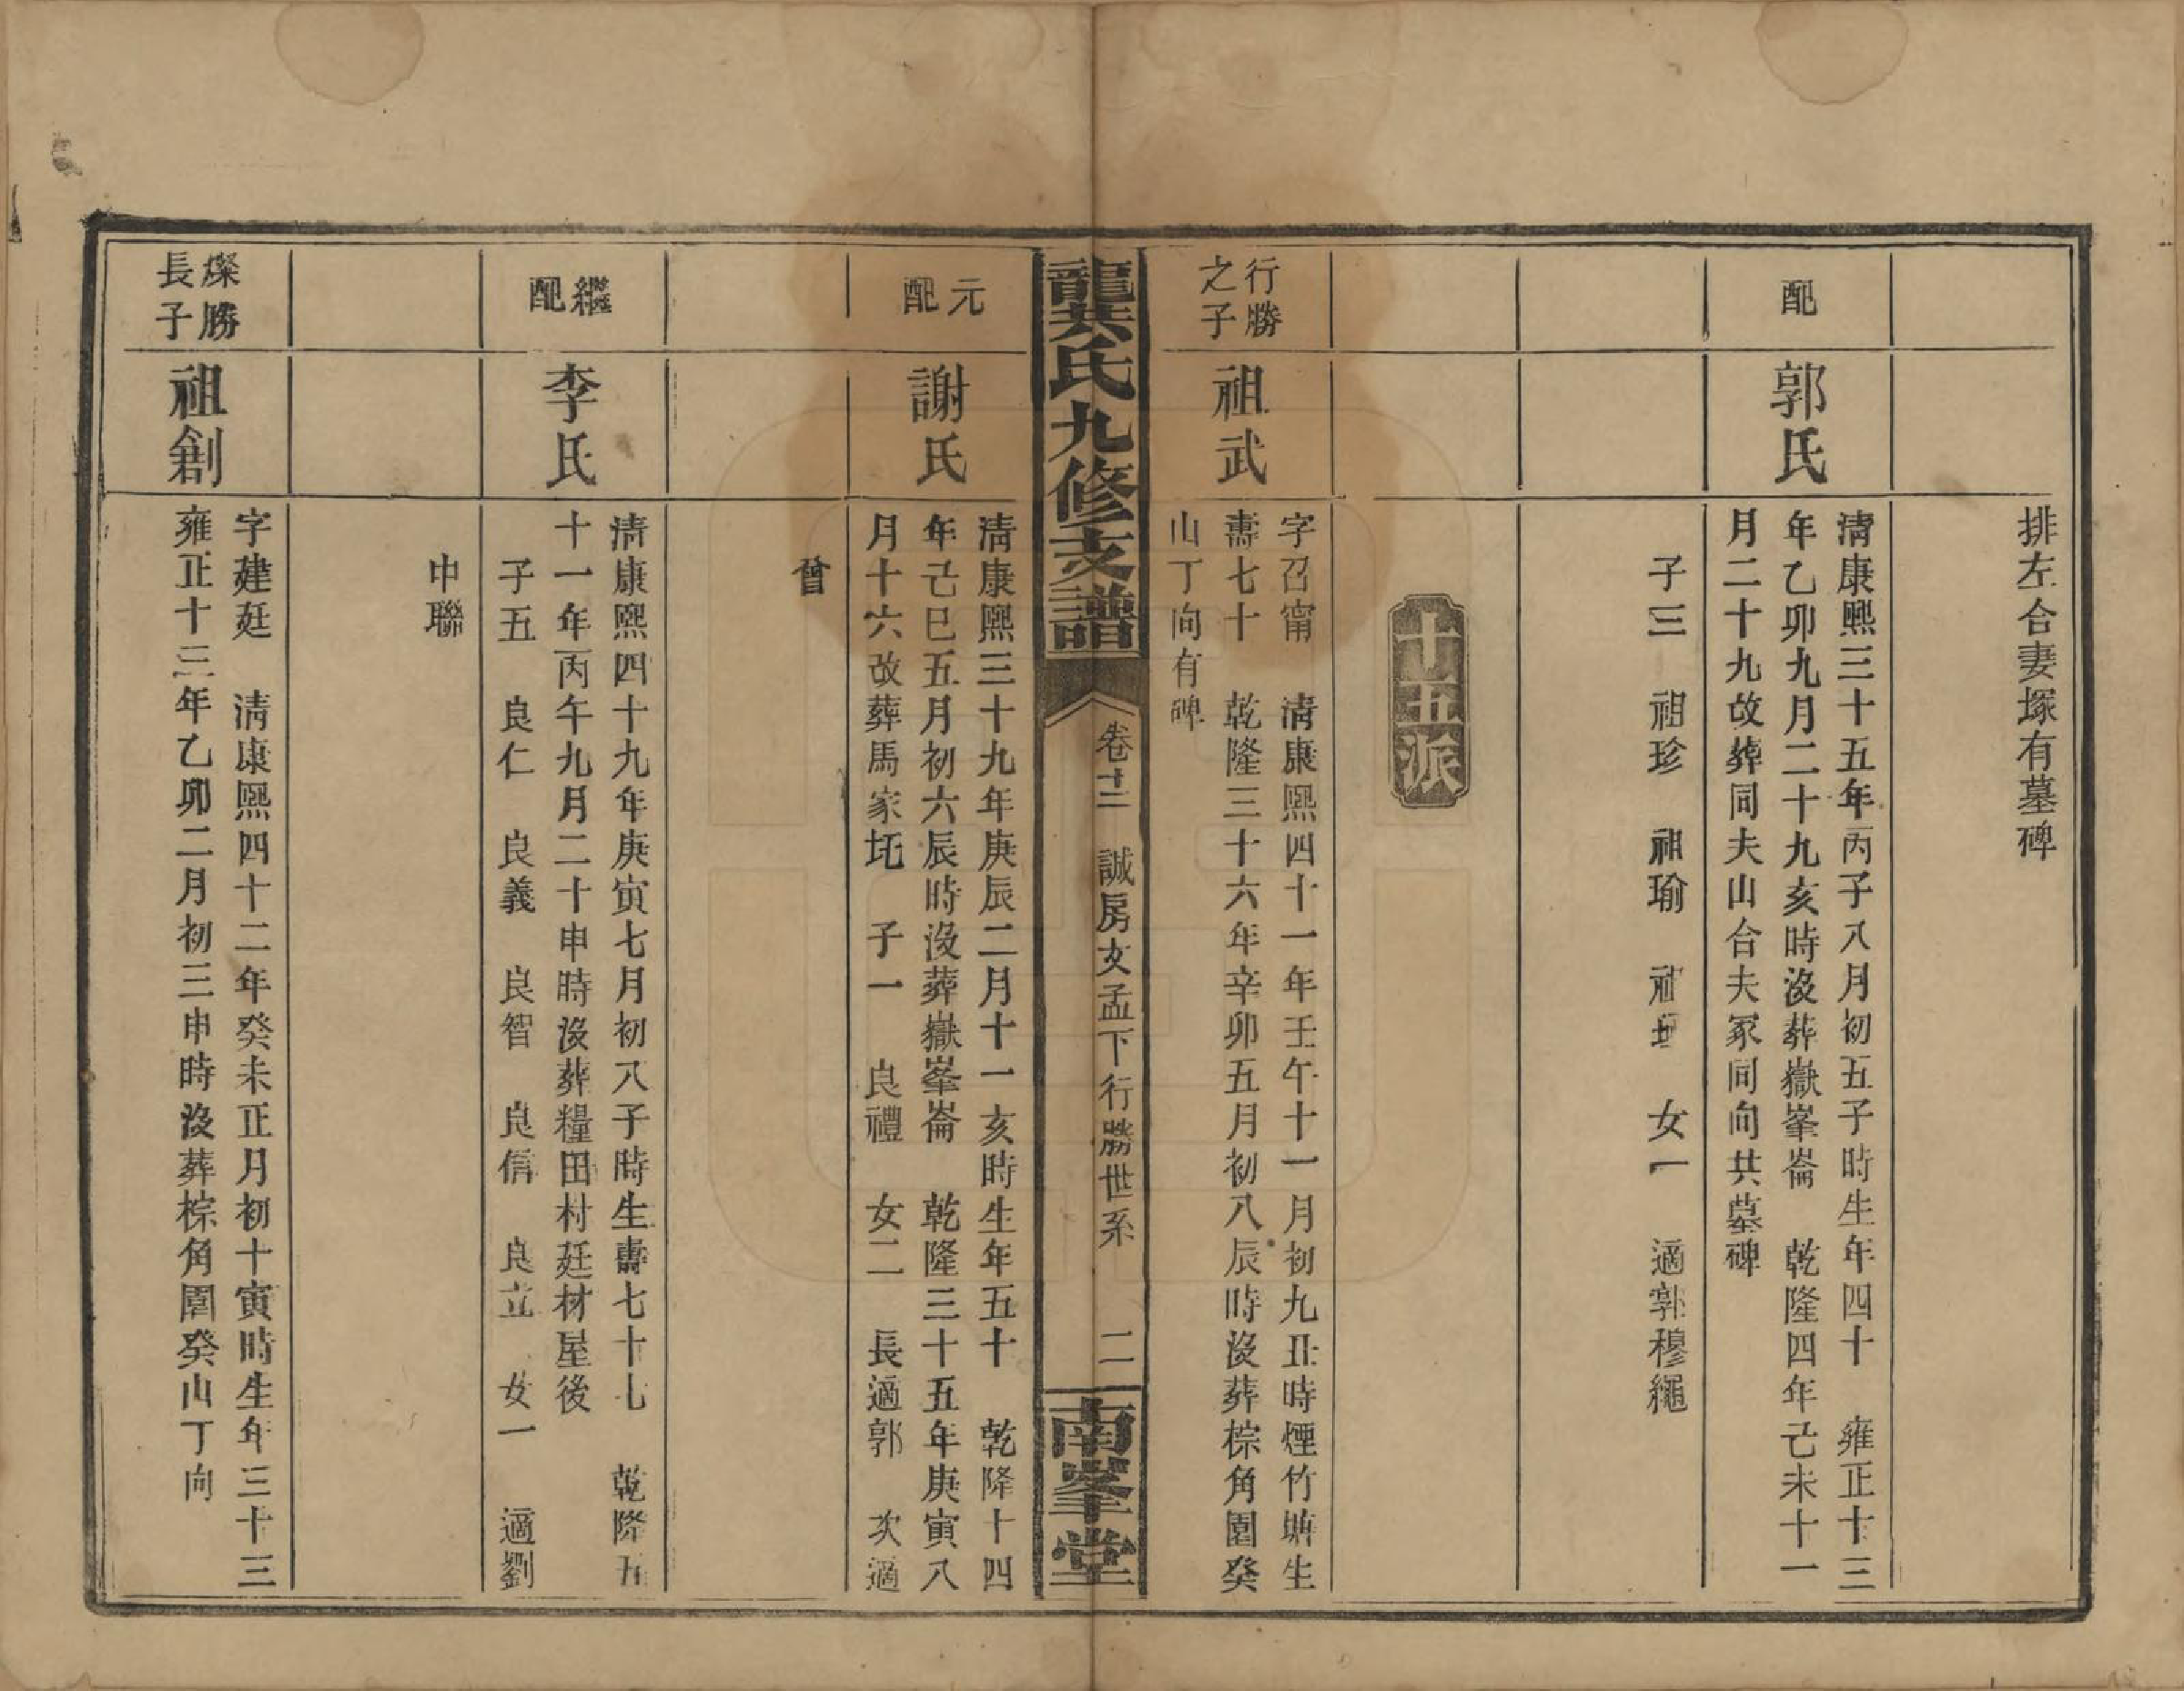 排左合妻塚有墓碑
配
郭氏
清康熙三十五年丙子八月初五子時生年四十　雍正十三
年乙卯九月二十九亥時沒葬嶽峯崙　乾隆四年己未十一
月二十九改葬同夫山合夫冢同向共墓碑
子三　祖珍　祖瑜　女一　適郭穆繩
十五派
行勝
之子
祖武
字召甯　清康熙四十一年壬午十一月初九丑時煙竹塘生
壽七十　乾隆三十六年辛卯五月初八辰時沒葬棕角園癸
山丁向有碑
龍共氏九修支譜
卷十二　誠房文孟下行勝世系　二
南峯堂
元配
謝氏
清康熙三十九年庚辰二月十一亥時生年五十　乾隆十四
年己巳五月初六辰時沒葬嶽峯崙　乾隆三十五年庚寅八
月十六改葬馬家圫　子一　良禮　女二　長適郭　次適
曾
繼配
李氏
清康熙四十九年庚寅七月初八子時生壽七十七　乾隆五
十一年丙午九月二十申時沒葬糧田村廷材屋後
子五　良仁　良義　良智　良信　良立　女一　適劉
中聯
燦勝
長子
祖創
字建廷　清康熙四十二年癸未正月初十寅時生年三十三
雍正十三年乙卯二月初三申時沒葬棕角園癸山丁向